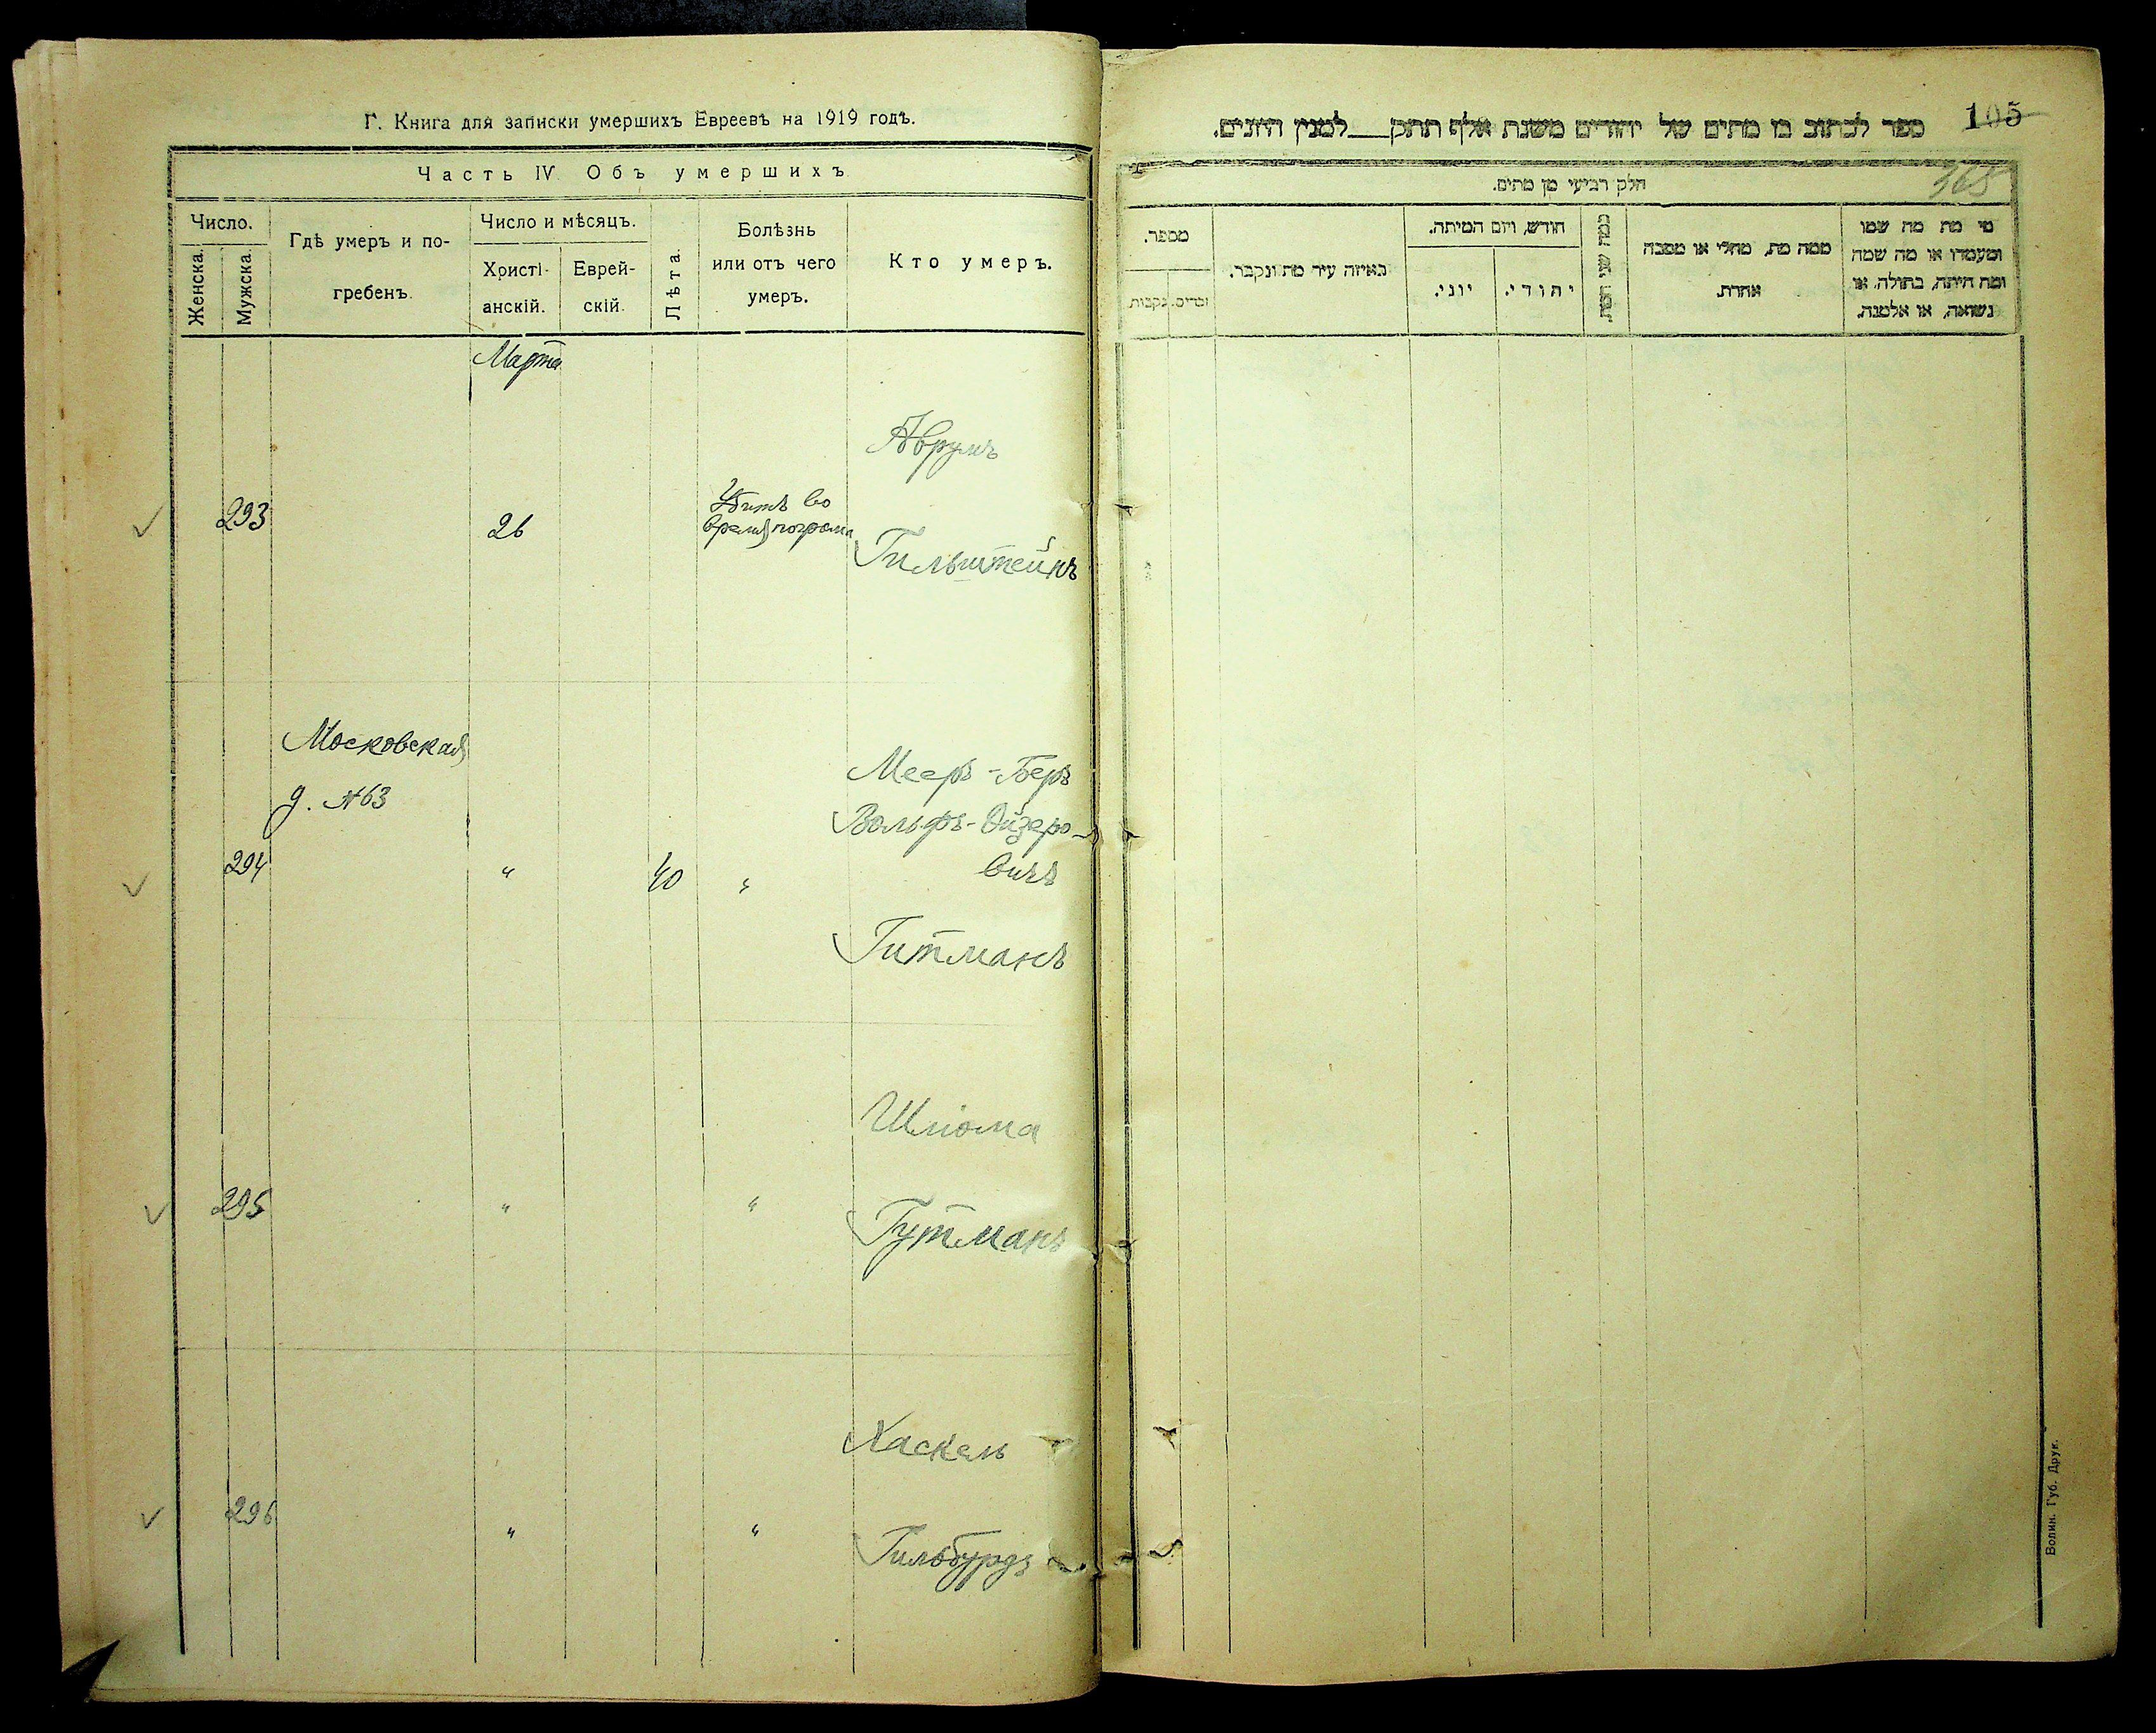 Г. Книга для записки умершихъ Евреевъ на 1919 годъ.
Часть IV Объ умершихъ
Число.
Женска.
Мужска.
Гдѣ умеръ и по-
гребенъ.
Число и мѣсяцъ.
Христі-
анскій.
Еврей-
скій.
Лѣта.
Болѣзнь
или отъ чего
умеръ.
Кто умеръ.
Марта
Аврумъ
293
26
Убитъ во
время погрома
Гильштейнъ
Московская
д. №63
Мееръ-Беръ
Вольфъ-Ойзеро-
вичъ
294
"
40
"
Гитманъ
Шлома
295
"
"
Гутманъ
Хаскель
296
"
"
Гильбурдъ
105
ספר לכתוב בו מתים של יהודים משנת אלף תתק למנין היונים.
365
חלק רביעי מן מתים.
מספר.
זכרים.
נקבות.
באיזה עיר מת ונקבר.
חודש, ויום המיתה.
יוני.
יהודי.
ממה מת, מחלי או מסבה
אחרת.
מי מת מה שמו
ומעמדו או מה שמה
ומה היתה, בתולה, או
נשואה, או אלמנה.
Волин. Губ. Друк.